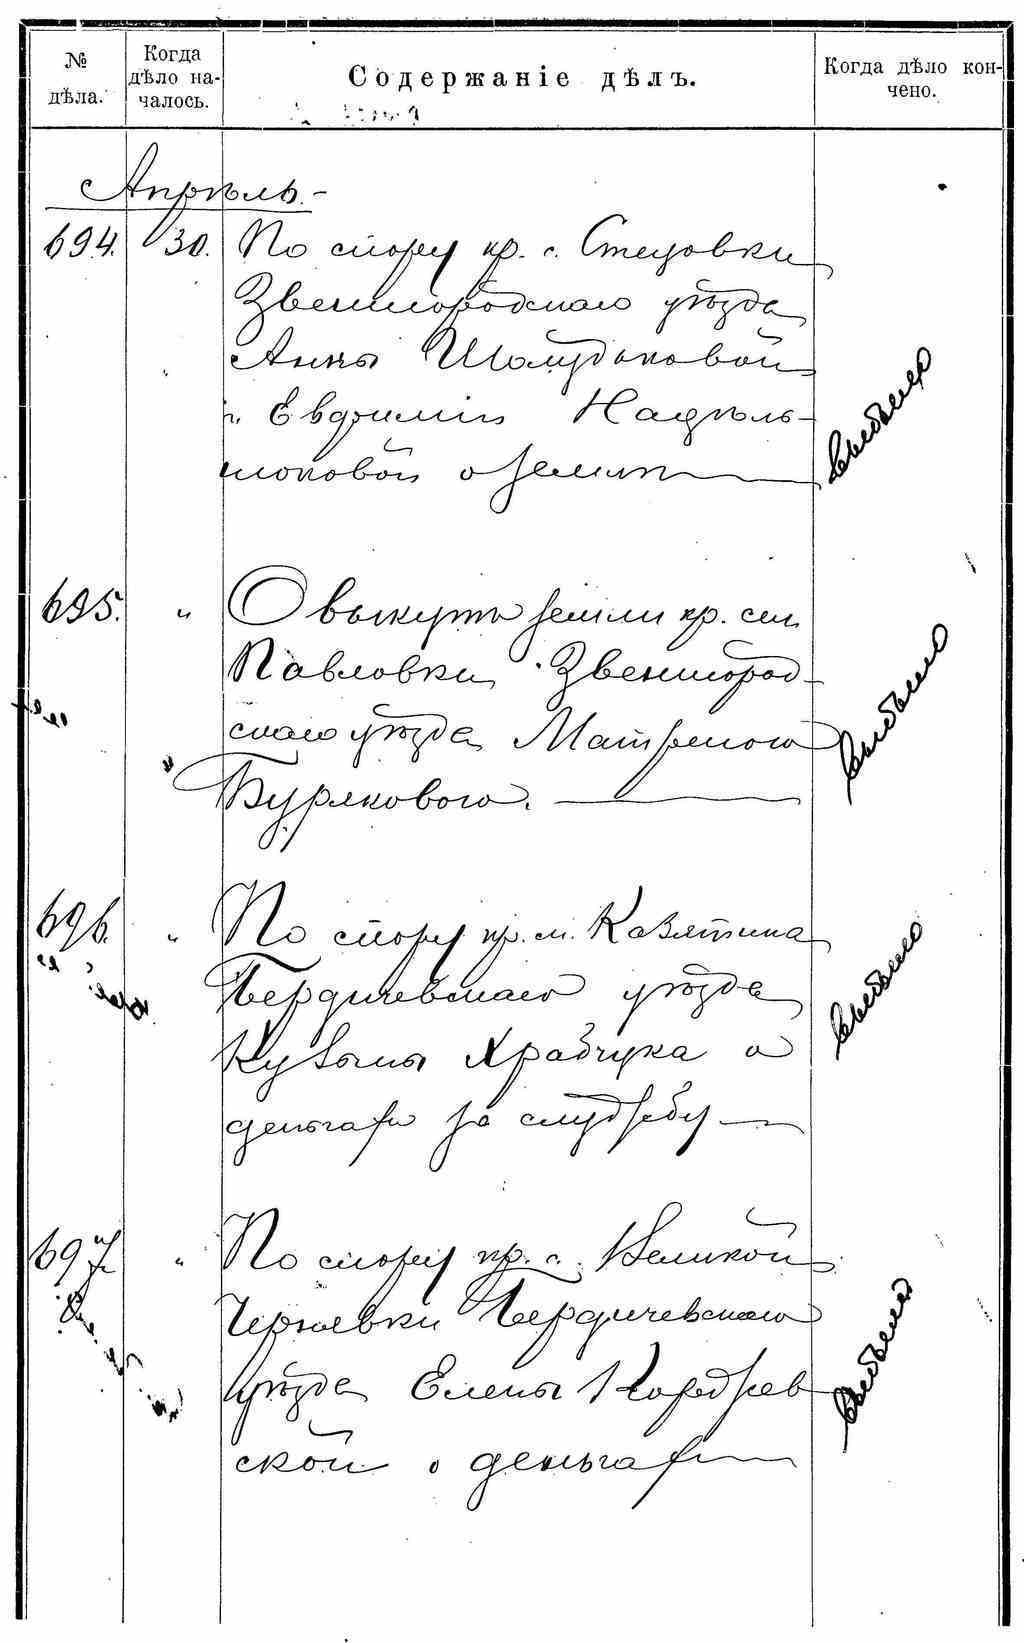 № дѣла.
Когда дѣло на-
чалось.
Содержаніе дѣлъ.
Когда дѣло кон-
чено.
Апрѣль.-
694. 30. По спору кр. с. Стецовки
Звенигородскаго уѣзда
Анны Шолудьковой
и Евфиміи Надѣль-
шоковой о землѣ
выбыло
695. " О выкупѣ земли кр. сел.
Павловки Звенигород-
скаго уѣзда Матреною
Буряковою.
выбыло
696. " По спору кр. м. Казятина
Бердичевскаго уѣзда
Кузьмы Храбчука о
деньгахъ за службу
выбыло
697. " По спору кр. с. Великой
Чернявки Бердичевскаго
уѣзда Елены Кордзев
ской о деньгах
выбыло